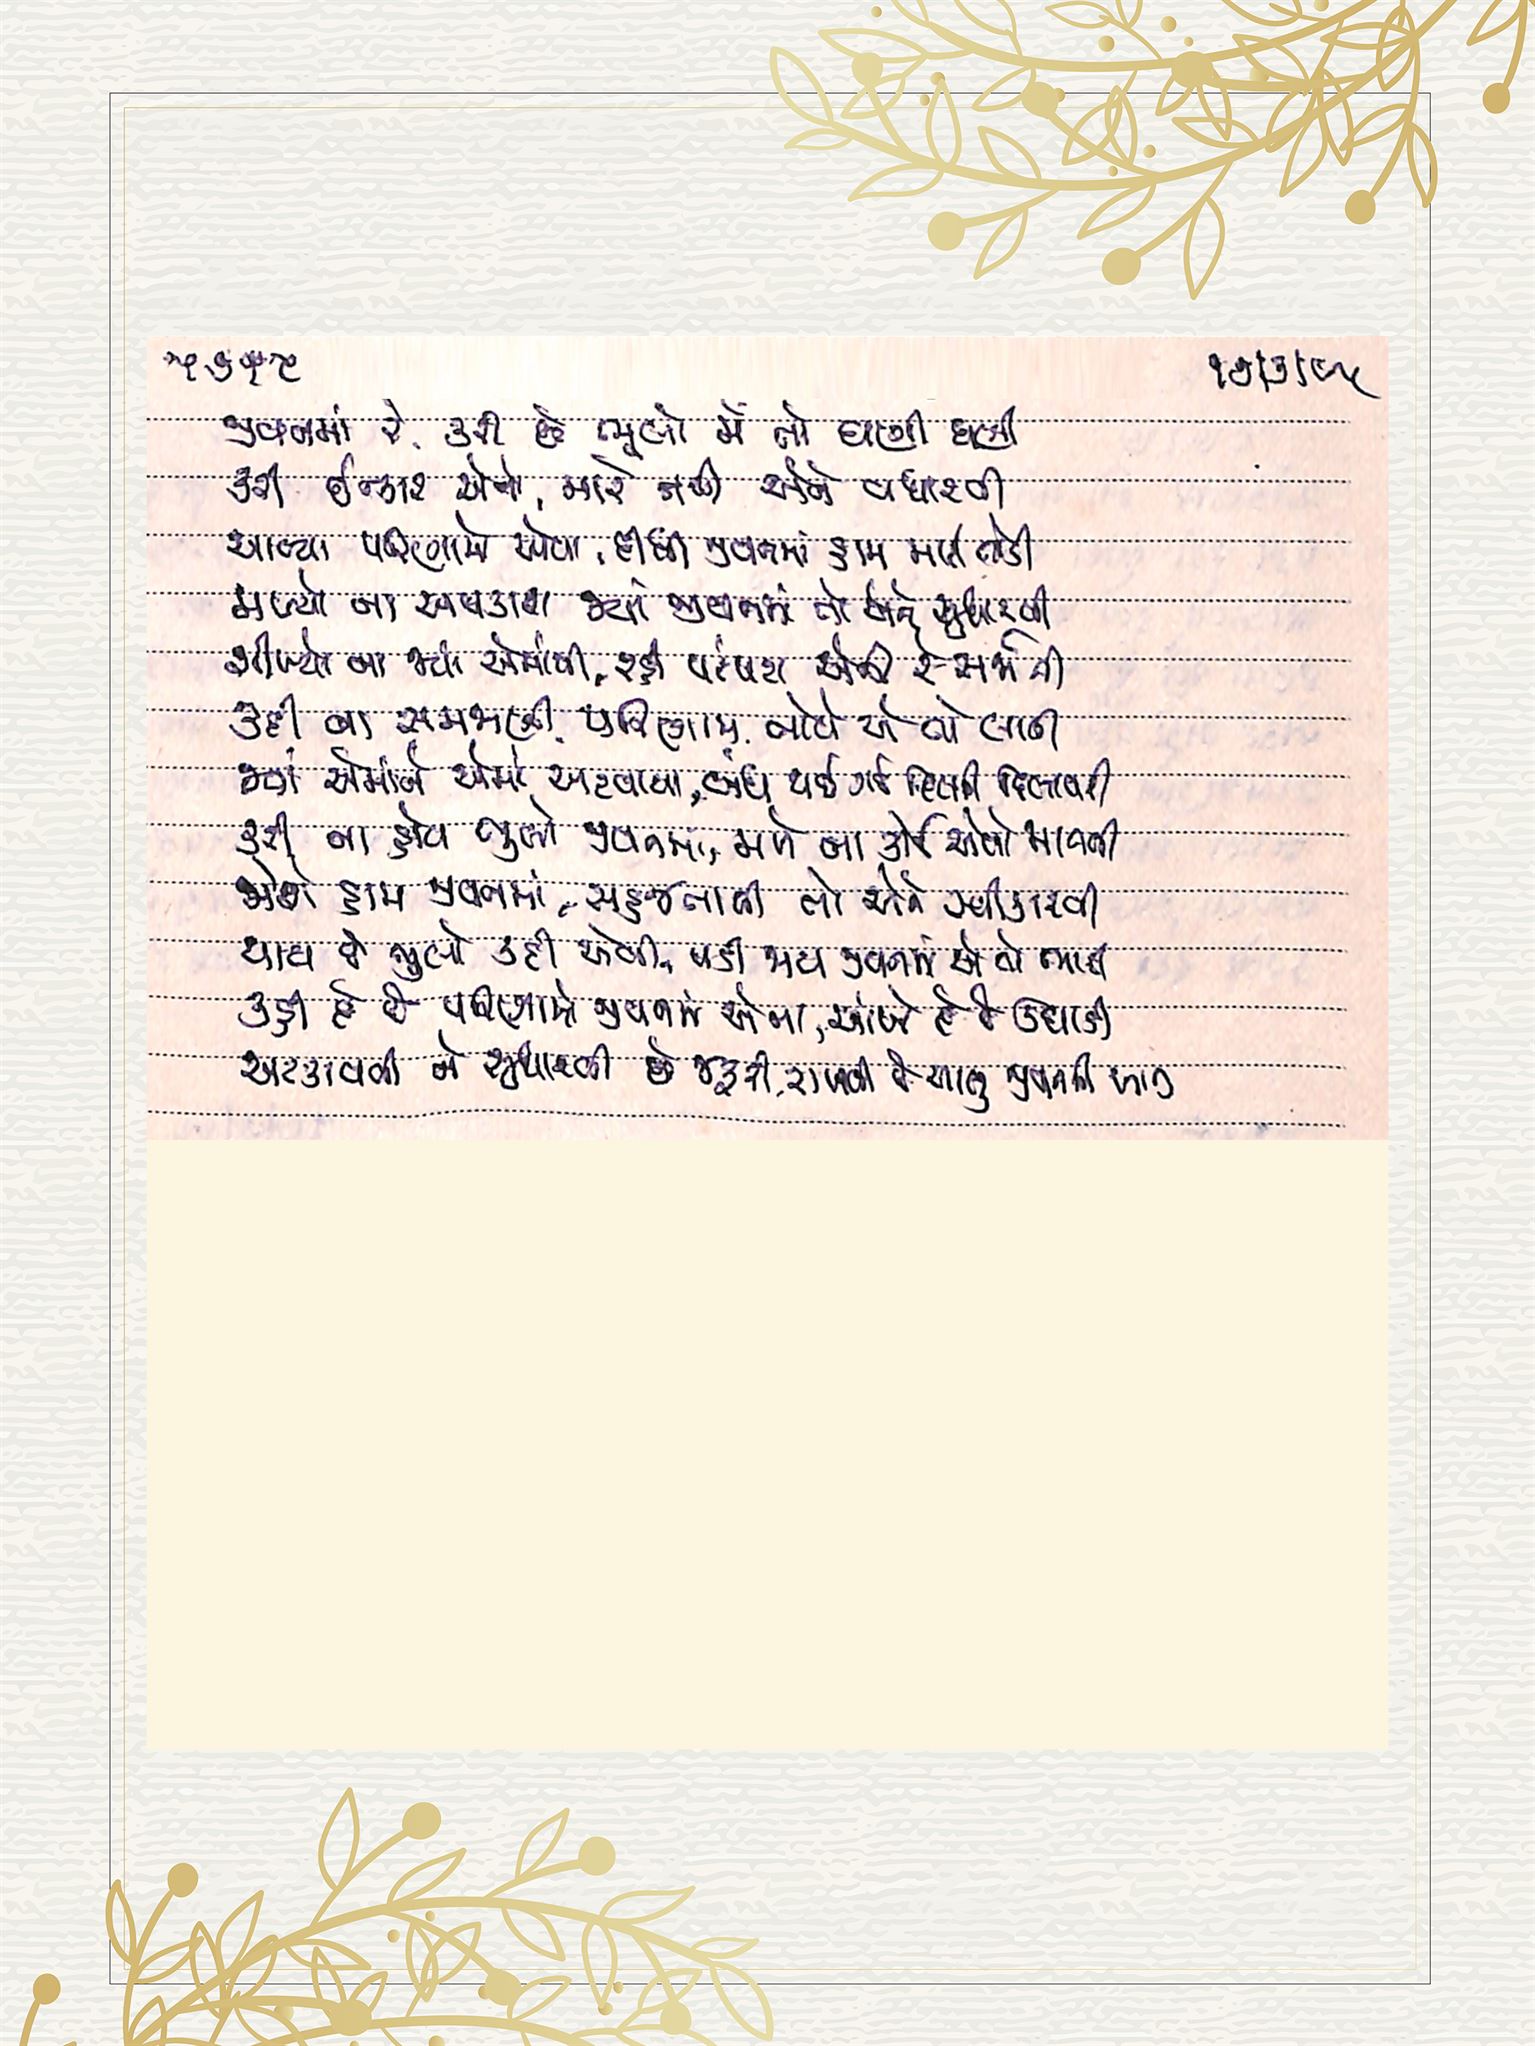 ૫૭૧૮ ૧૭/૩/૯૫
જીવનમાં રે, કરી છે ભૂલો મેં તો ઘણી ઘણી
કરી ઈન્કાર એનો, મારે નથી એને વધારવી
આવ્યા પરિણામો એવા, દીધી જીવનમાં હામ મારી તોડી
મળ્યો ના અવકાશ જ્યાં જીવનમાં તો એને સુધારવી
શીખ્યો ના જ્યાં એમાંથી, રહી પરંપરા એની રે સર્જાતી
કહી ના સમજાતી, પરિણામ નોધે એ તો લાવી
જ્યાં એમાંને એમાં અટવાયા, બંધ થઈ ગઈ દિલની દિલાવરી
કરી ના હોય ભૂલો જીવનમાં, મળે ના કોઈ એવો માનવી
જોશે હામ જીવનમાં, સહજતાથી તો એને સ્વીકારવી
થાય છે ભૂલો કદી એવી, પડી જાય જીવનમાં એ તો ભારી
કહી દે છે પરિણામો જીવનમાં એના, આંખો દે છે ઉઘાડી
અટકાવવી ને સુધારવી છે જરૂરી, રાખવી છે ચાલુ જીવનની